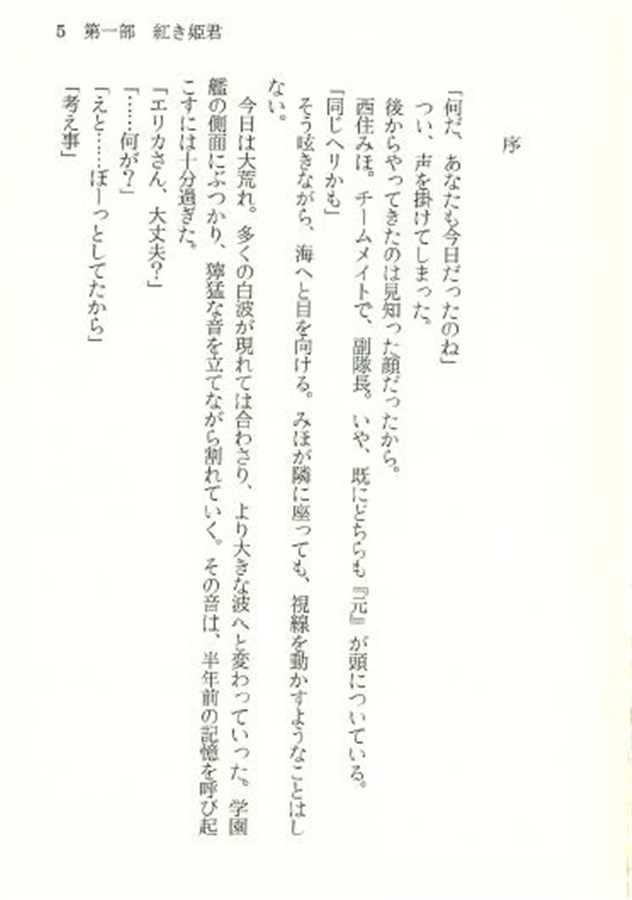 5 第一部 紅き姫君
序
「何だ、あなたも今日だったのね」
つい、声を掛けてしまった。
後からやってきたのは見知った顔だったから。
西住みほ。チームメイトで、副隊長。いや、既にどちらも『元』が頭についている。
「同じヘリかも」
そう呟きながら、海へと目を向ける。みほが隣に座っても、視線を動かすようなことはし
ない。
今日は大荒れ。多くの白波が現れては合わさり、より大きな波へと変わっていった。学園
艦の側面にぶつかり、獰猛な音を立てながら割れていく。その音は、半年前の記憶を呼び起
こすには十分過ぎた。
「エリカさん、大丈夫?」
「……何が?」
「えと……ぼーっとしてたから」
「考え事」